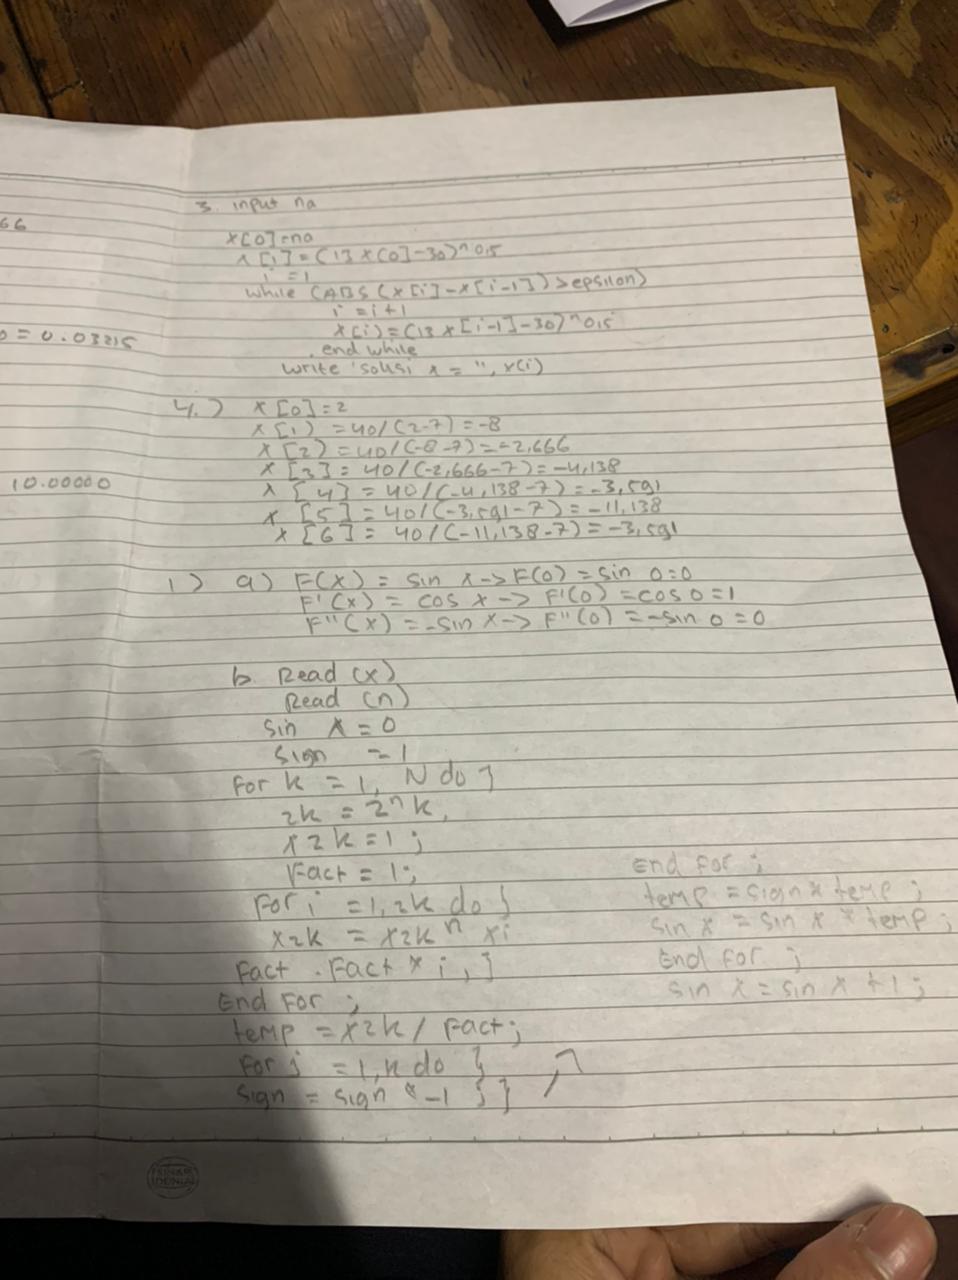 66
0 = 0.03215
10.00000
3. input na
x[0]=na
x[1]=(13x[0]-30)^0,5
i=1
while (ABS(x[i]-x[i-1])>epsilon)
i=i+1
x(i)=(13x[i-1]-30)^0,5
end while
write 'solusi x = ", x(i)
4.) x[0]=2
x[1) =40/(2-7)=-8
x[2)=40/(-8-7)=-2,666
x[3]=40/(-2,666-7)=-4,138
x[4]=40/(-4,138-7)=-3,591
x[5]=40/(-3,591-7)=-11,138
x[6]= 40/(-11,138-7)=-3,591
1) a) F(x) = sin x->F(0)=sin 0=0
F'(x) = cos x-> F'(0) =cos 0=1
F''(x) =-sin x-> F''(0) =-sin 0=0
b. Read (x)
Read (n)
sin x=0
sign =1
For k = 1, N do }
2k = 2^k,
x2k=1;
Fact = 1;
For i =1,2k do }
x2k = x2k^ xi
Fact . Fact * i, }
End For ;
temp = x2k/ Fact;
For j =1,k do }
sign = sign * -1 } }
End For ;
temp =sign*temp;
sin x =sin x * temp;
End For ;
sin x = sin x +1;
SINAR
DUNIA